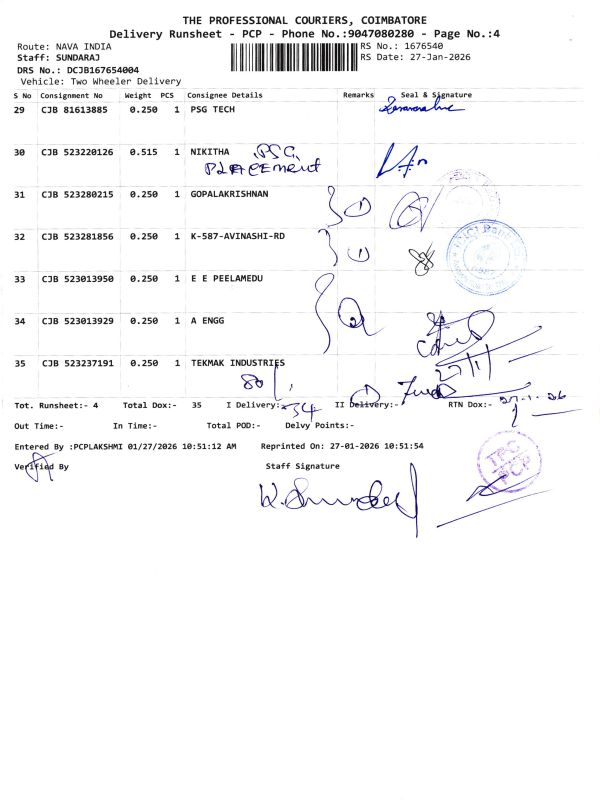 THE PROFESSIONAL COURIERS, COIMBATORE
Delivery Runsheet - PCP - Phone No.:9047080280 - Page No.:4
Route: NAVA INDIA RS No.: 1676540
Staff: SUNDARAJ RS Date: 27-Jan-2026
DRS No.: DCJB167654004
Vehicle: Two Wheeler Delivery
S No Consignment No Weight PCS Consignee Details Remarks Seal & Signature
29 CJB 81613885 0.250 1 PSG TECH
30 CJB 523220126 0.515 1 NIKITHA PSG
PLACEMENT
31 CJB 523280215 0.250 1 GOPALAKRISHNAN 1
32 CJB 523281856 0.250 1 K-587-AVINASHI-RD 1
33 CJB 523013950 0.250 1 E E PEELAMEDU
34 CJB 523013929 0.250 1 A ENGG 2
35 CJB 523237191 0.250 1 TEKMAK INDUSTRIES
27/1/
Tot. Runsheet:- 4 Total Dox:- 35 I Delivery:- 34 II Delivery:- 1 RTN Dox:- 27-1-26
Out Time:- In Time:- Total POD:- Delvy Points:-
Entered By :PCPLAKSHMI 01/27/2026 10:51:12 AM Reprinted On: 27-01-2026 10:51:54
Verified By Staff Signature
TPC
PCP